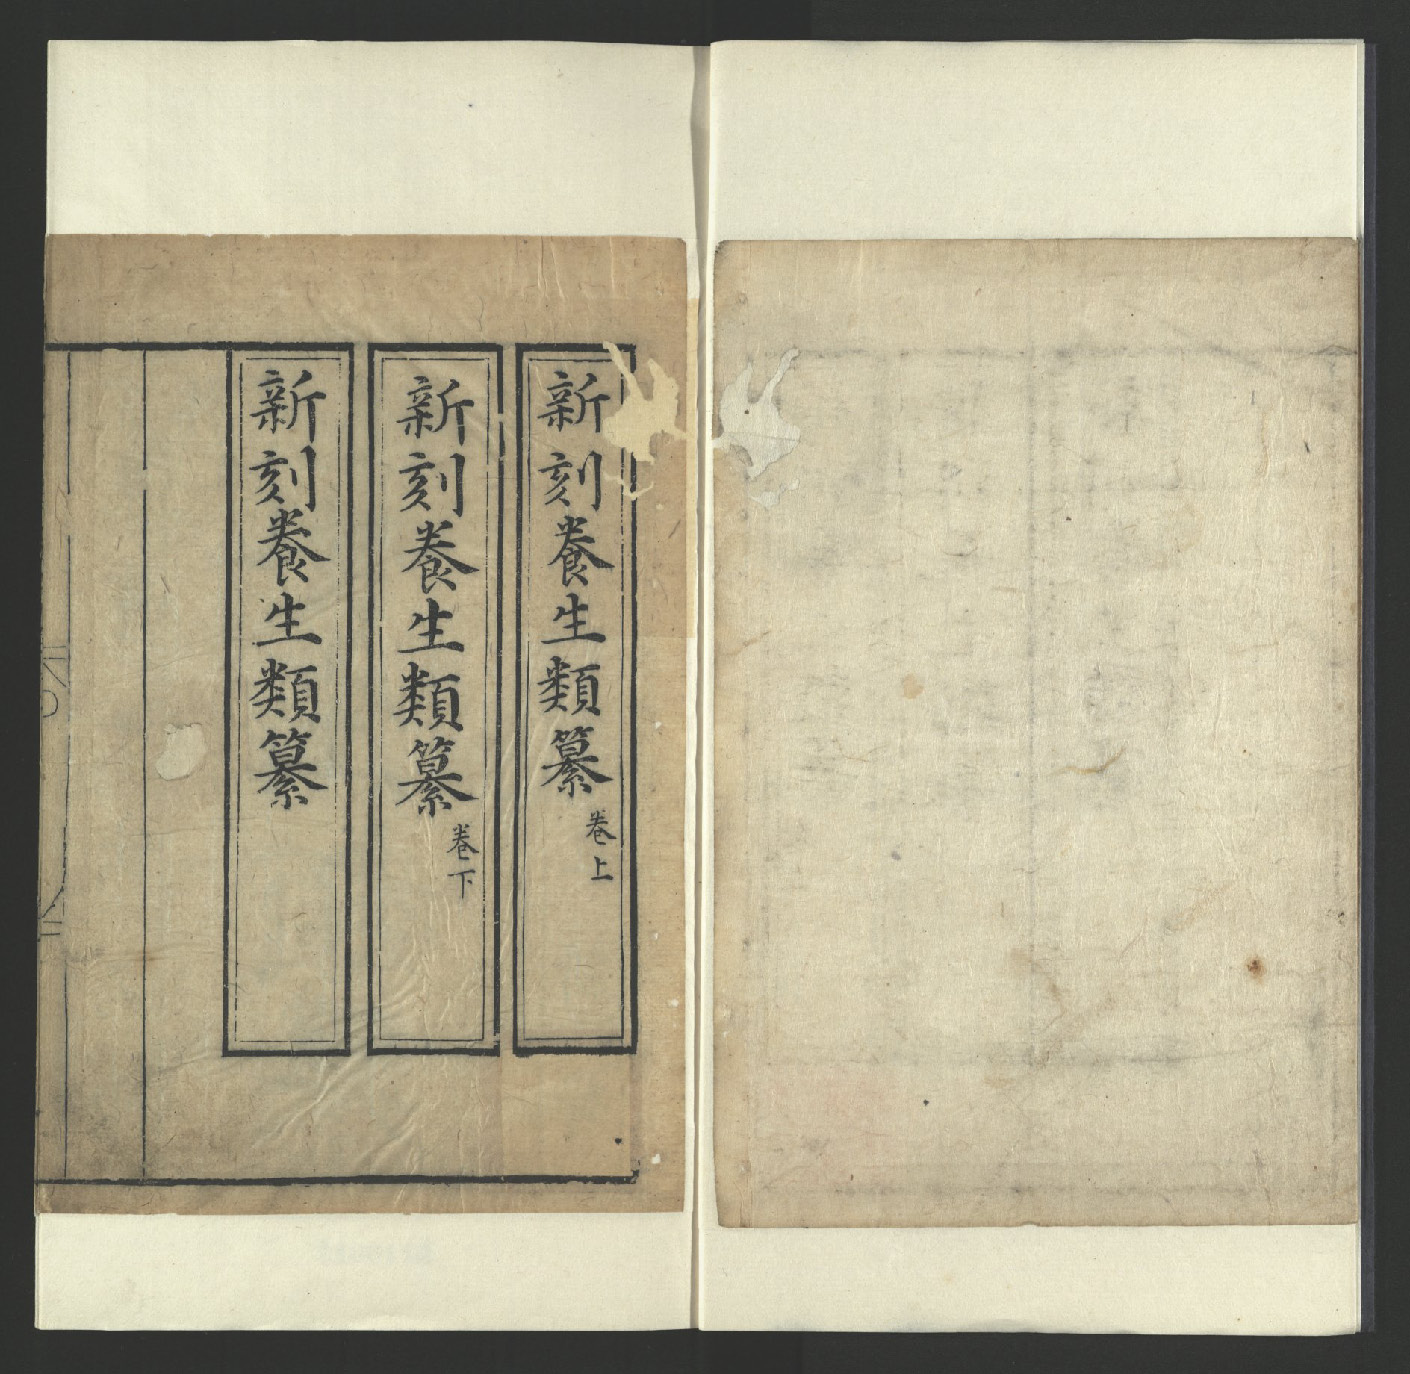 新刻養生類纂卷上
新刻養生類纂卷下
新刻養生類纂